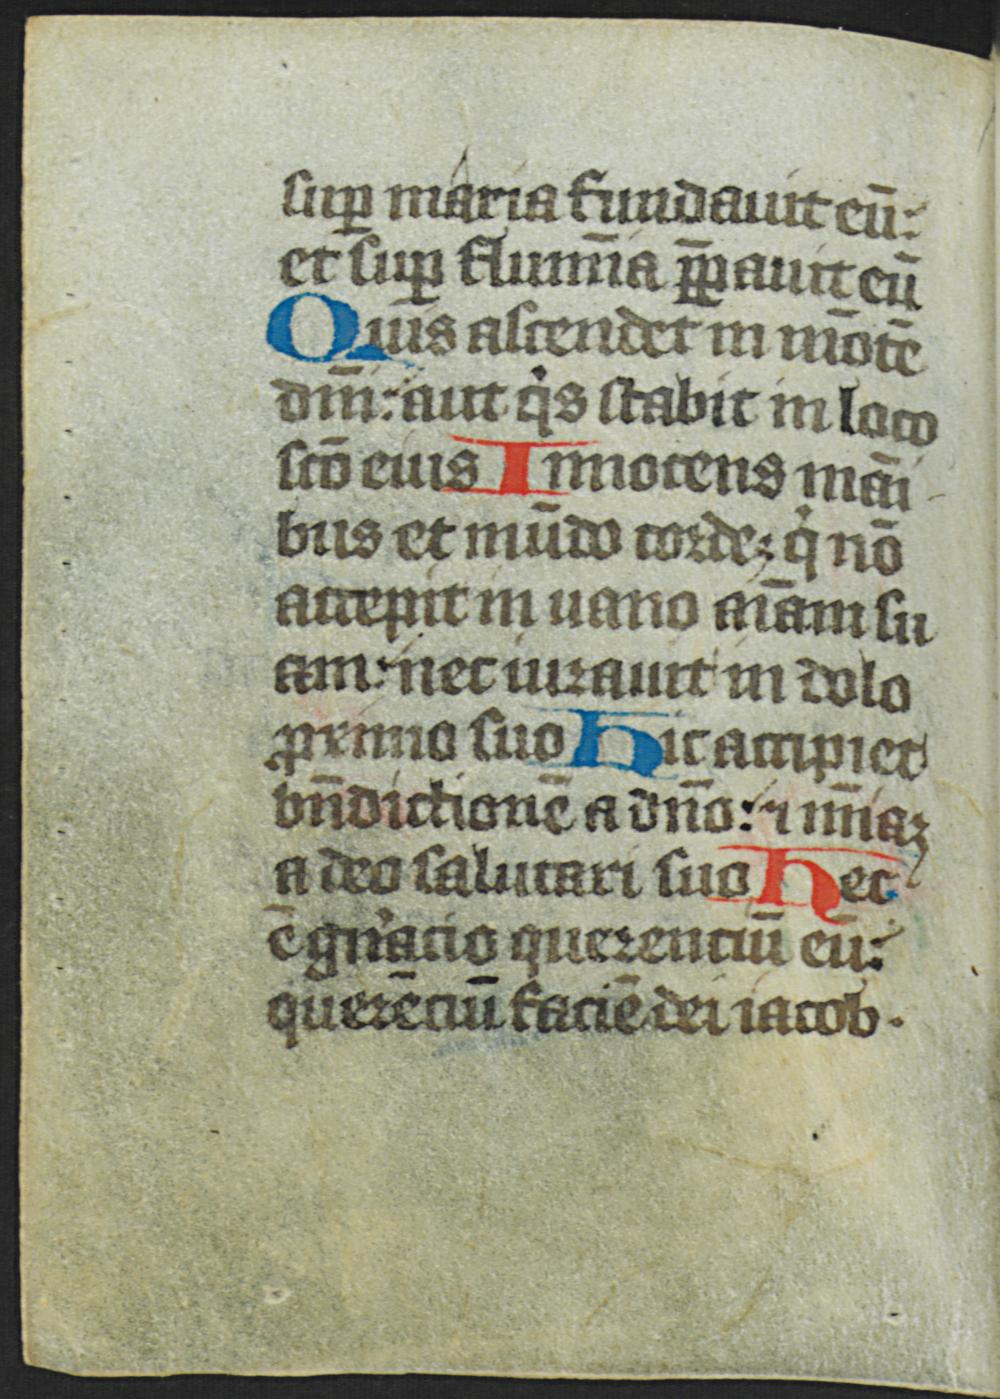 suꝑ maria fundauit eū:
et suꝑ flumīa p̄ꝑauit eū
Quis ascendet in mōtē
dn̄i: aut qͥs stabit in loco
scō eius Innocens māi
bus et mūdo corde: qͥ nō
accepit in uano aīam su
am: nec iurauit in dolo
ꝓximo suo Hic accipiet
bn̄dictionē a dn̄o: ⁊ mīaꝫ
a deo salutari suo Hec
ē gn̄'atio querentiū eū:
querētiū faciē dei iacob.